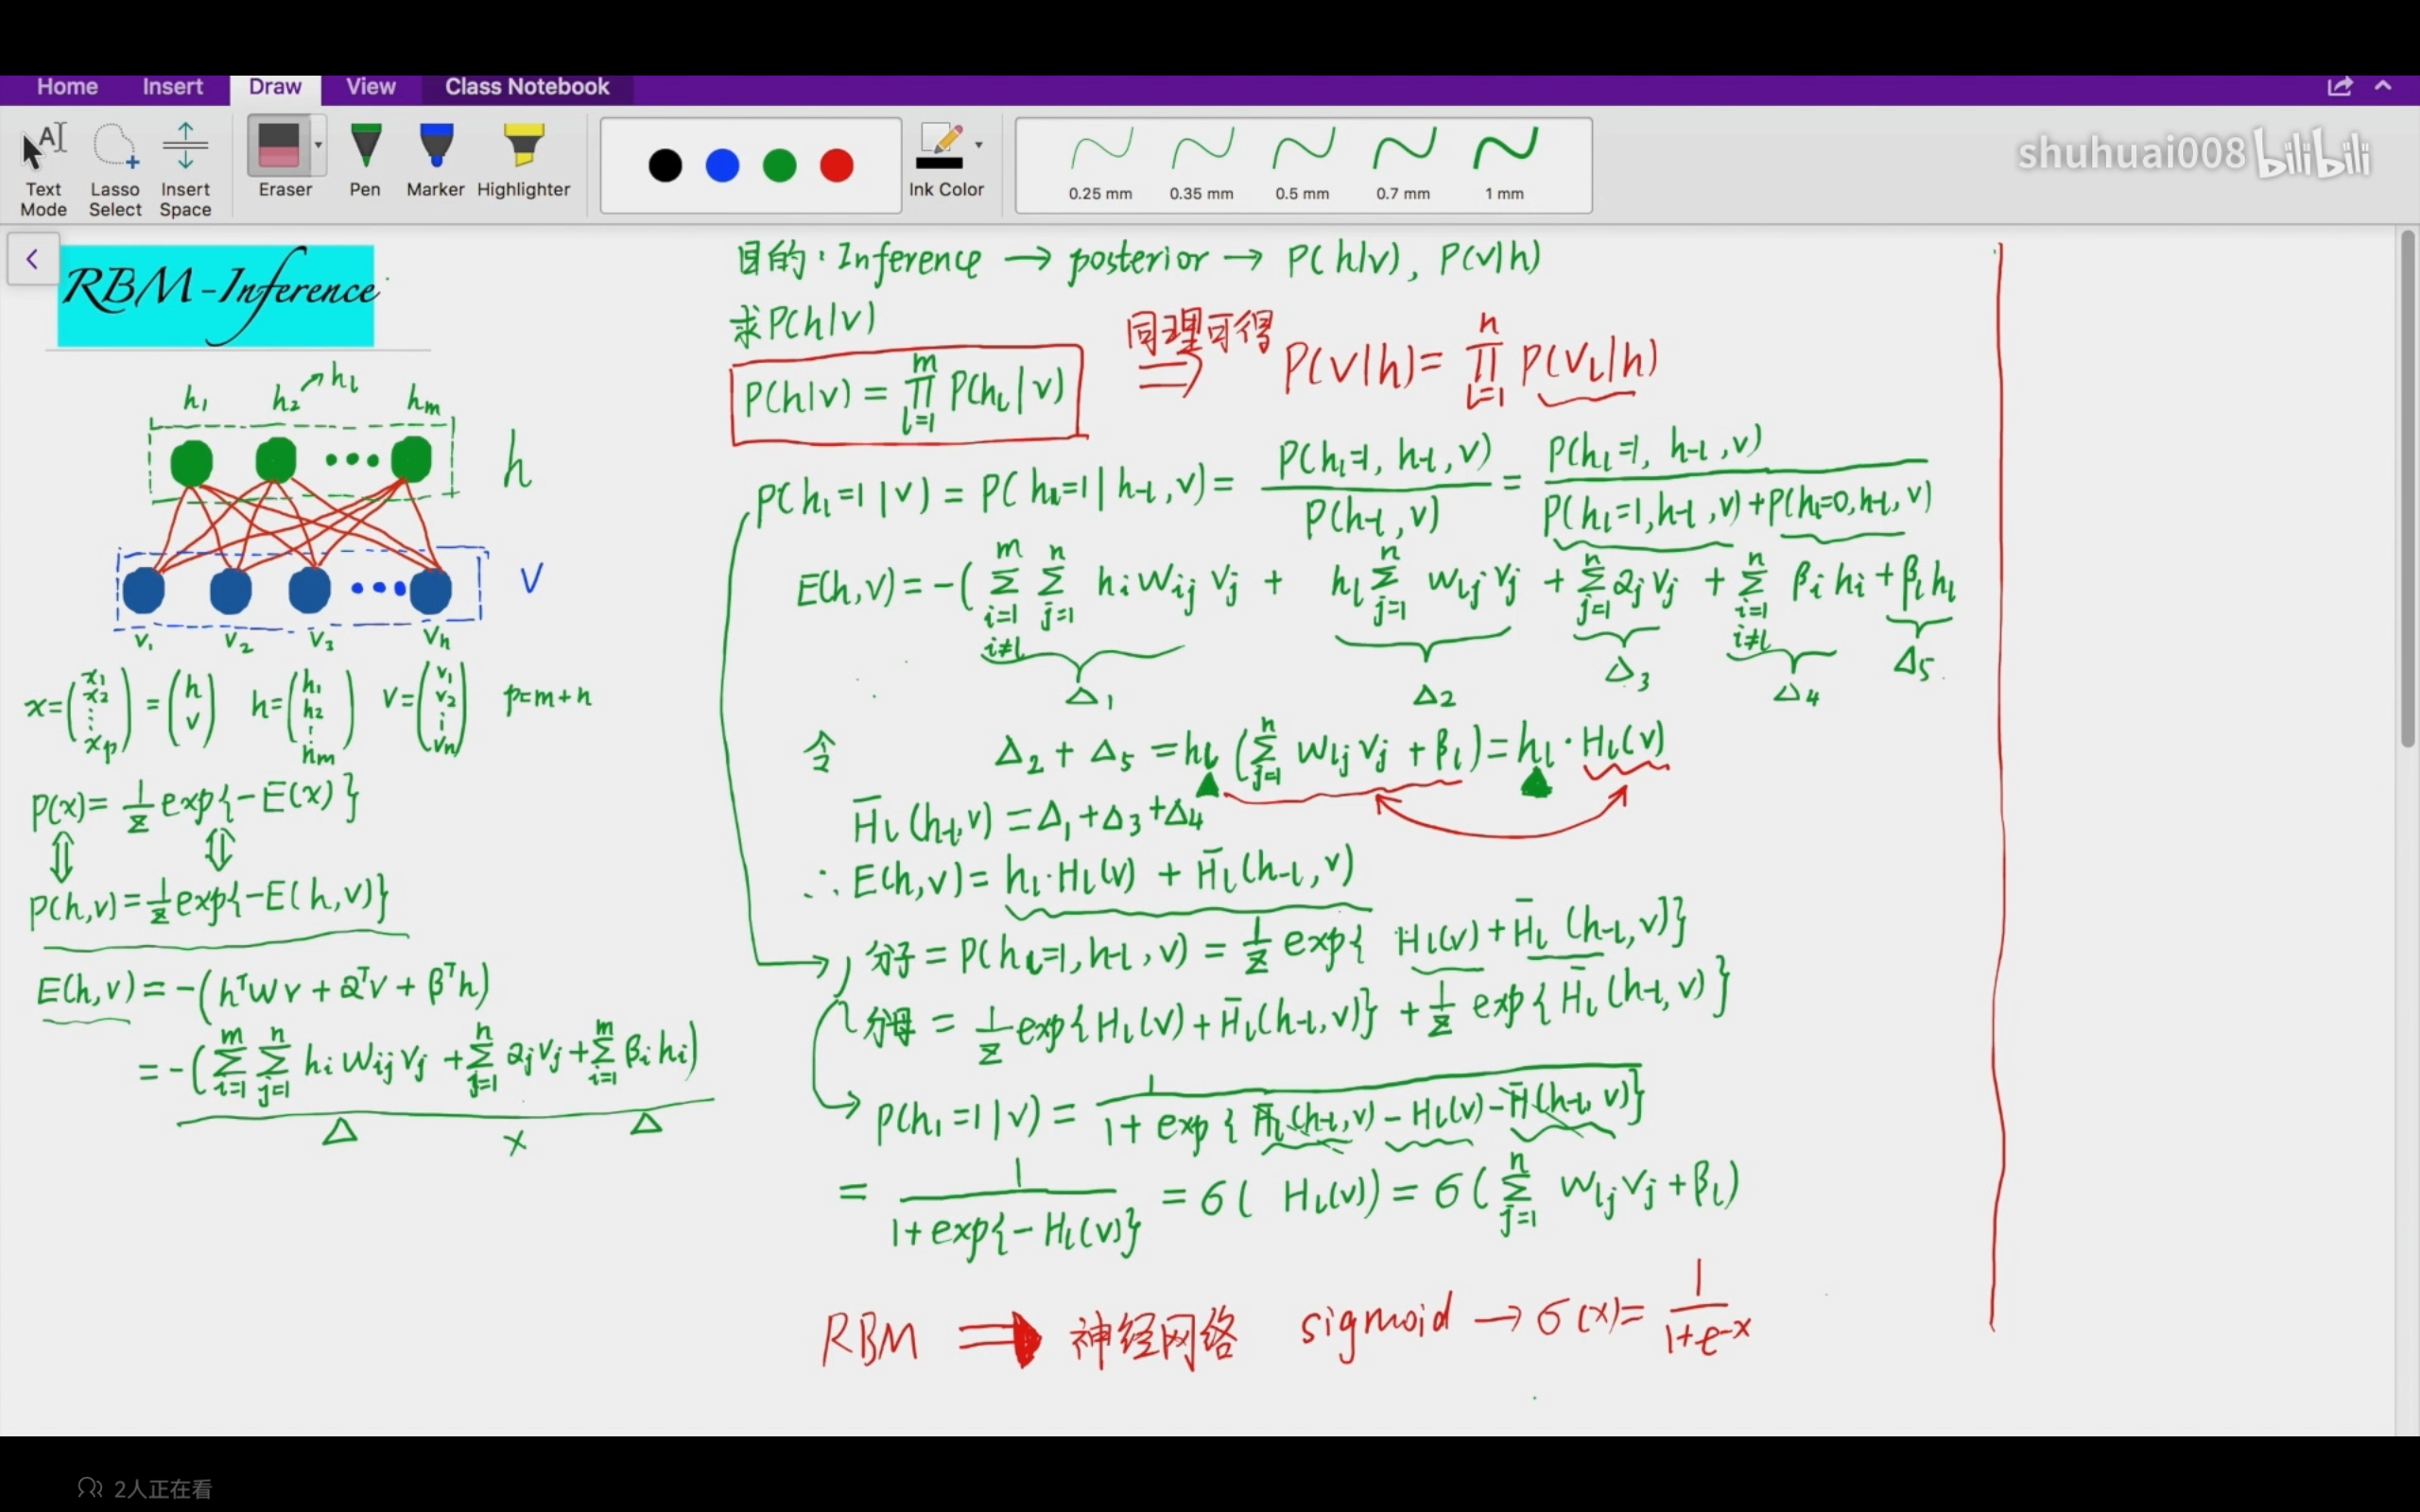 Home Insert Draw View Class Notebook
Text Mode
Lasso Select
Insert Space
Eraser
Pen
Marker
Highlighter
Ink Color
0.25 mm 0.35 mm 0.5 mm 0.7 mm 1 mm
shuhuai008 bilibili
RBM-Inference
h₁ h₂ ↗hₗ hₘ
h
v
v₁ v₂ v₃ vₙ
x=(x₁ x₂ ⋮ xₚ) = (h v) h=(h₁ h₂ ⋮ hₘ) v=(v₁ v₂ ⋮ vₙ) p=m+n
P(x)= 1/Z exp{-E(x)}
⇕ ⇕
P(h,v)= 1/Z exp{-E(h,v)}
E(h,v) = -(hᵀwv + αᵀv + βᵀh)
= -(∑_{i=1}^{m} ∑_{j=1}^{n} hᵢ wᵢⱼ vⱼ + ∑_{j=1}^{n} αⱼvⱼ + ∑_{i=1}^{m} βᵢhᵢ)
Δ × Δ
目的: Inference → posterior → P(h|v), P(v|h)
求P(h|v)
P(h|v) = ∏_{l=1}^{m} P(hₗ|v)
同理可得 ⇒ P(v|h)= ∏_{l=1}^{n} P(vₗ|h)
P(hₗ=1|v) = P(hₗ=1|h₋ₗ,v) = P(hₗ=1, h₋ₗ, v) / P(h₋ₗ, v) = P(hₗ=1, h₋ₗ, v) / P(hₗ=1, h₋ₗ, v)+P(hₗ=0, h₋ₗ, v)
E(h,v) = -(∑_{i=1, i≠l}^{m} ∑_{j=1}^{n} hᵢ wᵢⱼ vⱼ + hₗ ∑_{j=1}^{n} wₗⱼ vⱼ + ∑_{j=1}^{n} αⱼvⱼ + ∑_{i=1, i≠l}^{n} βᵢhᵢ + βₗhₗ
Δ₁ Δ₂ Δ₃ Δ₄ Δ₅
令 Δ₂ + Δ₅ = hₗ (∑_{j=1}^{n} wₗⱼvⱼ + βₗ) = hₗ · Hₗ(v)
H̄ₗ(h₋ₗ,v) = Δ₁+Δ₃+Δ₄
∴ E(h,v) = hₗ·Hₗ(v) + H̄ₗ(h₋ₗ,v)
分子 = P(hₗ=1, h₋ₗ, v) = 1/Z exp{ Hₗ(v) + H̄ₗ(h₋ₗ,v)}
分母 = 1/Z exp{Hₗ(v) + H̄ₗ(h₋ₗ,v)} + 1/Z exp{H̄ₗ(h₋ₗ,v)}
P(hₗ=1|v) = 1 / 1+ exp{H̄ₗ(h₋ₗ,v) - Hₗ(v) - H̄(h₋ₗ,v)}
= 1 / 1+exp{-Hₗ(v)} = σ( Hₗ(v)) = σ(∑_{j=1}^{n} wₗⱼvⱼ+βₗ)
RBM ⇒ 神经网络 sigmoid → σ(x)= 1 / 1+e^{-x}
2人正在看